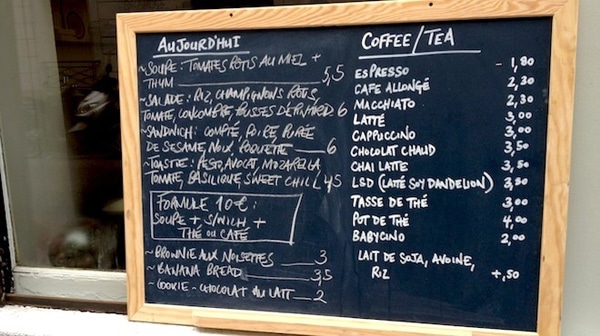 AUJOURD'HUI
~SOUPE: TOMATES ROTIS AU MIEL +
THYM 5,5
~SALADE: RIZ, CHAMPIGNONS ROTIS,
TOMATE, CONCOMBRE, POUSSES D'EPINARD 6
~SANDWICH: COMPTÉ, POIRE, PURÉE
DE SESAME, NOIX, ROQUETTE 6
~TOASTIE: PESTO, AVOCAT, MOZARELLA,
TOMATE, BASILIQUE, SWEET CHILI 4,5
FORMULE 10€:
SOUPE + S/WICH +
THÉ OU CAFÉ
~BROWNIE AUX NOISETTES 3
~BANANA BREAD 3,5
~COOKIE - CHOCOLAT AU LAIT 2
COFFEE/TEA
ESPRESSO - 1,80
CAFE ALLONGÉ 2,30
MACCHIATO 2,30
LATTÉ 3,00
CAPPUCCINO 3,00
CHOCOLAT CHAUD 3,50
CHAI LATTE 3,50
LSD (LATTÉ SOY DANDELION) 3,50
TASSE DE THÉ 3,00
POT DE THÉ 4,00
BABYCINO 2,00
LAIT DE SOJA, AVOINE,
RIZ +,50